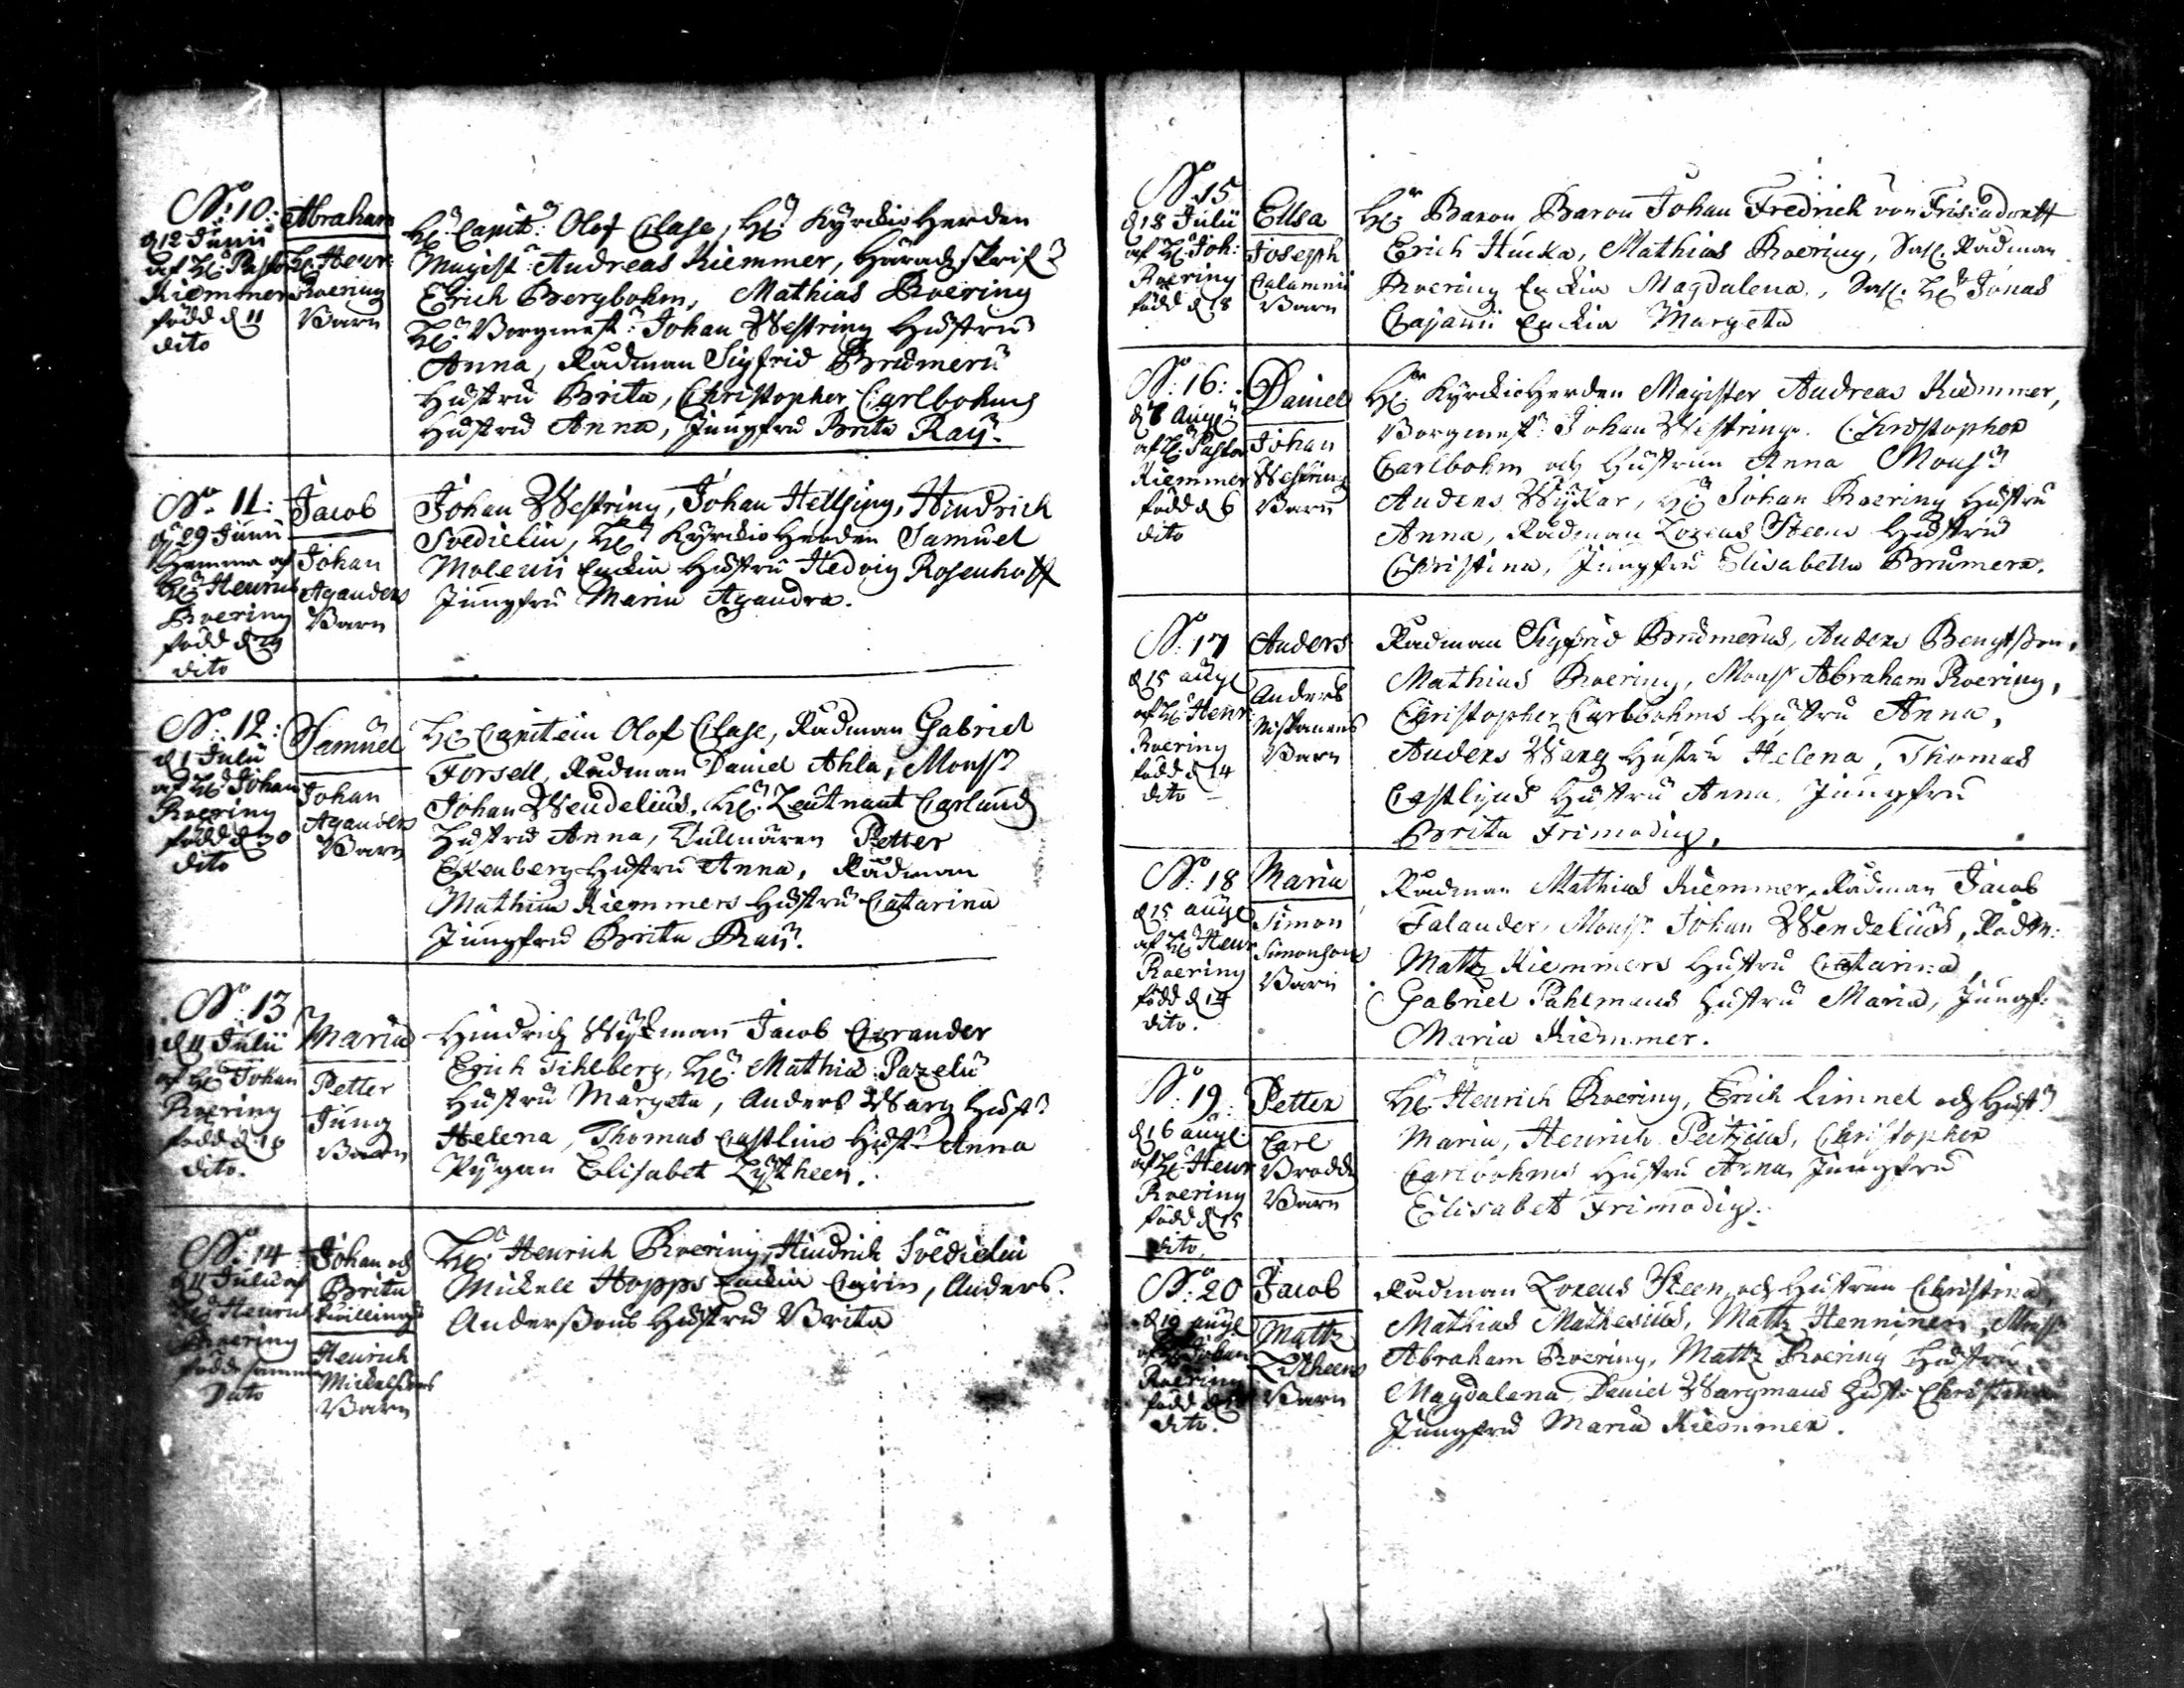 No: 10:
d 12 Junii
af H: Pastor
Kiemmer
född d 11
dito
Abraham
H: Henr:
Roering
Barn
Hr: Capit: Olof Clase, Hr: Kyrckio Herden
Magistr: Andreas Kiemmer, Häradzskrifr
Erich Bergbohm, Mathias Roering
Hr: Borgmestr: Johan Westring Hustru
Anna, Rådman Sigfrid Brumeri
Hustru Brita, Christopher Carlbohms
Hustru Anna, Jungfru Brita Raij.
No. 11:
d 29 Junii
Hemma af
Hr Henric
Roering
född d 29
dito
Jacob
Johan
Aganders
Barn
Johan Westring, Johan Hellsing, Hindrich
Svedielin, Hr Kyrckio Herden Samuel
Molerii Enckia Hustru Hedvig Rosenhoff
Jungfru Maria Agandra.
No: 12:
d 1 Julii
af Hr Johan
Roering
född d 30
dito
Samuel
Johan
Aganders
Barn
Hr Capitein Olof Clase, Rådman Gabriel
Forsell, Rådman Daniel Ahla, Monsr
Johan Wendelius, Hr: Leutnant Carlunds
Hustru Anna, Tullnären Petter
Ekenberg Hustru Anna, Rådman
Mathias Kiemmers Hustru Catarina
Jungfru Brita Raij.
No: 13
d 11 Julii
af Hr Johan
Roering
född d 10
dito.
Maria
Petter
Jung
Barn
Hindrich Wijkman Jacob Corander
Erich Tihlberg, Hr: Mathia Pazelii
Hustru Margeta, Anders Warg Hustr
Helena, Thomas Castlius Hustr Anna
Pygan Elisabet Lystheen.
No: 14
d 11 Julii af
Hr Henric
Roering
födde samma
Dato
Johan och
Brita
twillingar
Henrich
Mickelssons
Barn
Hr: Henrich Roering, Hindrich Svedielin
Mickell Hopps Enckia Carin, Anders
Anderssons Hustru Brita
No 15
d 18 Julii
af H: Joh:
Roering
född d 18
Ellsa
Joseph
Calamnii
Barn
Hr: Baron Baron Johan Fredrich von Frisendorff
Erich Hucka, Mathias Roering, Sal. Rådman
Roering Enckia Magdalena, Sal. Hr Jonas
Cajanii Enckia Margeta
No: 16:
d 8 Aug:
af H: Pastor
Kiemmer
född d 6
dito
Daniel
Johan
Westring
Barn
Hr: Kyrckio Herden Magister Andreas Kiemmer,
Borgmestr: Johan Westring. Christopher
Carlbohm och Hustrun Anna Monsr
Anders Wijkar, Hr Johan Roering Hustru
Anna, Rådman Lorens Steens Hustru
Christina, Jungfru Elisabetha Brumera.
No: 17
d 15 aug:
af H: Henr:
Roering
född d 14
dito
Anders
Anders
Niskanens
Barn
Rådman Sigfrid Brumerus, Anders Bengtsson,
Mathias Roering, Monsr Abraham Roering,
Christopher Carlbohms Hustru Anna,
Anders Warg Hustru Helena, Thomas
Castlius Hustru Anna, Jungfru
Brita Frimodig.
No: 18
d 15 aug:
af Hr Henr
Roering
född d 14
dito.
Maria
Simon
Simonsons
Barn
Rådman Mathias Kiemmer, Rådman Jacob
Falander, Monsr Johan Wendelius, Rådm:
Matts Kiemmers Hustru Catarina,
Gabriel Pahlmans Hustru Maria, Jungf:
Maria Kiemmer.
No: 19
d 16 aug:
af H: Henr
Roering
född d 15
dito,
Petter
Carl
Brodds
Barn
Hr Henrich Roering, Erich Limnel och Hustr
Maria, Henrich Peitzius, Christopher
Carlbohms Hustru Anna, Jungfru
Elisabet Frimodig.
No: 20
d 19 aug:
af H: Johan
Roering
född d 18
dito.
Jacob
Matts
Litheens
Barn
Rådman Lorens Steen och Hustrun Christina,
Mathias Mathesius, Matts Henninen, Monsr
Abraham Roering, Matts Roering Hustru
Magdalena, Daniel Wargmans Hustr Christina
Jungfru Maria Kiemmer.